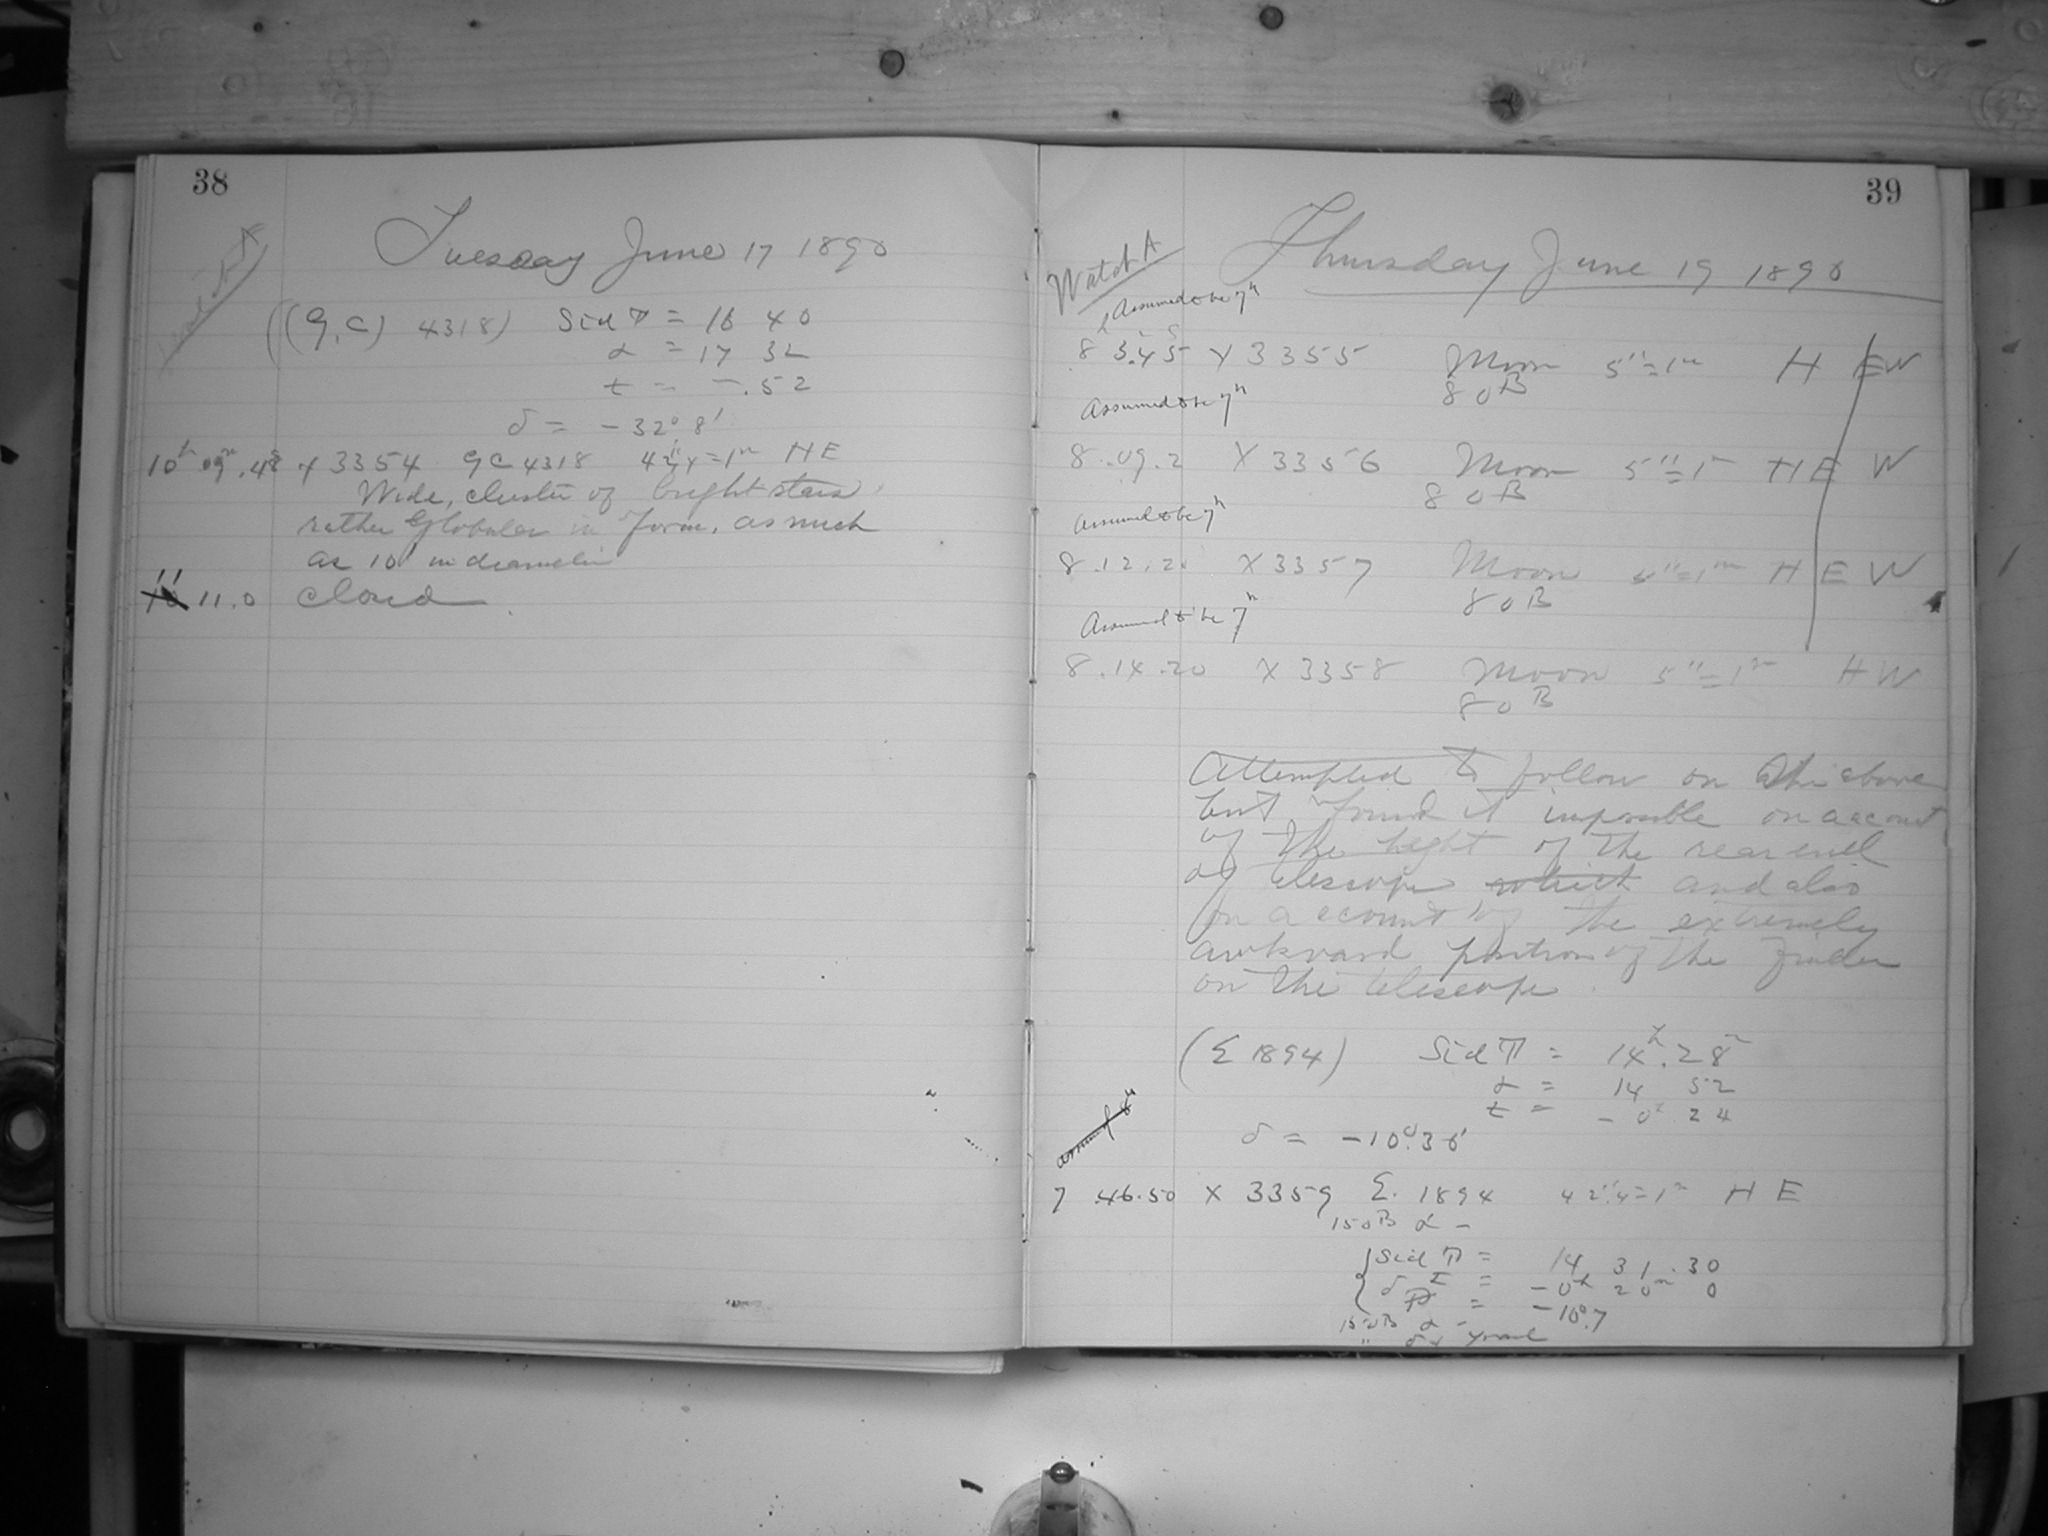 38
Tuesday June 17 1890
(G.C) 4318) Sid T = 16 40
α = 17 32
t = -.52
δ = -32° 8'
10h 09m.48 X 3354 GC 4318 42".4=1m HE
Wide, cluster of bright stars,
rather Globular in form, as much
as 10' in diameter
11 11.0 closed
39
Watch A
Thursday June 19 1890
Assumed to be 7h
8 3.45 X 3355 Moon 5"=1m H EW
80B
Assumed to be 7h
8.09.2 X 3356 Moon 5"=1m HE W
80B
Assumed to be 7h
8.12.20 X 3357 Moon 5"=1m H E W
80B
Assumed to be 7h
8.14.20 X 3358 Moon 5"=1m HW
80B
Attempted to follow on the above
but found it impossible on account
of the height of the rear end
of telescope which and also
on account of the extremely
awkward position of the finder
on the telescope.
(Σ 1894) Sid T = 14h.28m
α = 14 52
t = -0h 24
δ = -10°.36'
assumed 8h
7 .46.50 X 3359 Σ. 1894 42".4=1m HE
150B α -
Sid T = 14 31.30
t = -0h 20m 0
δ = -10°.7
150B α -